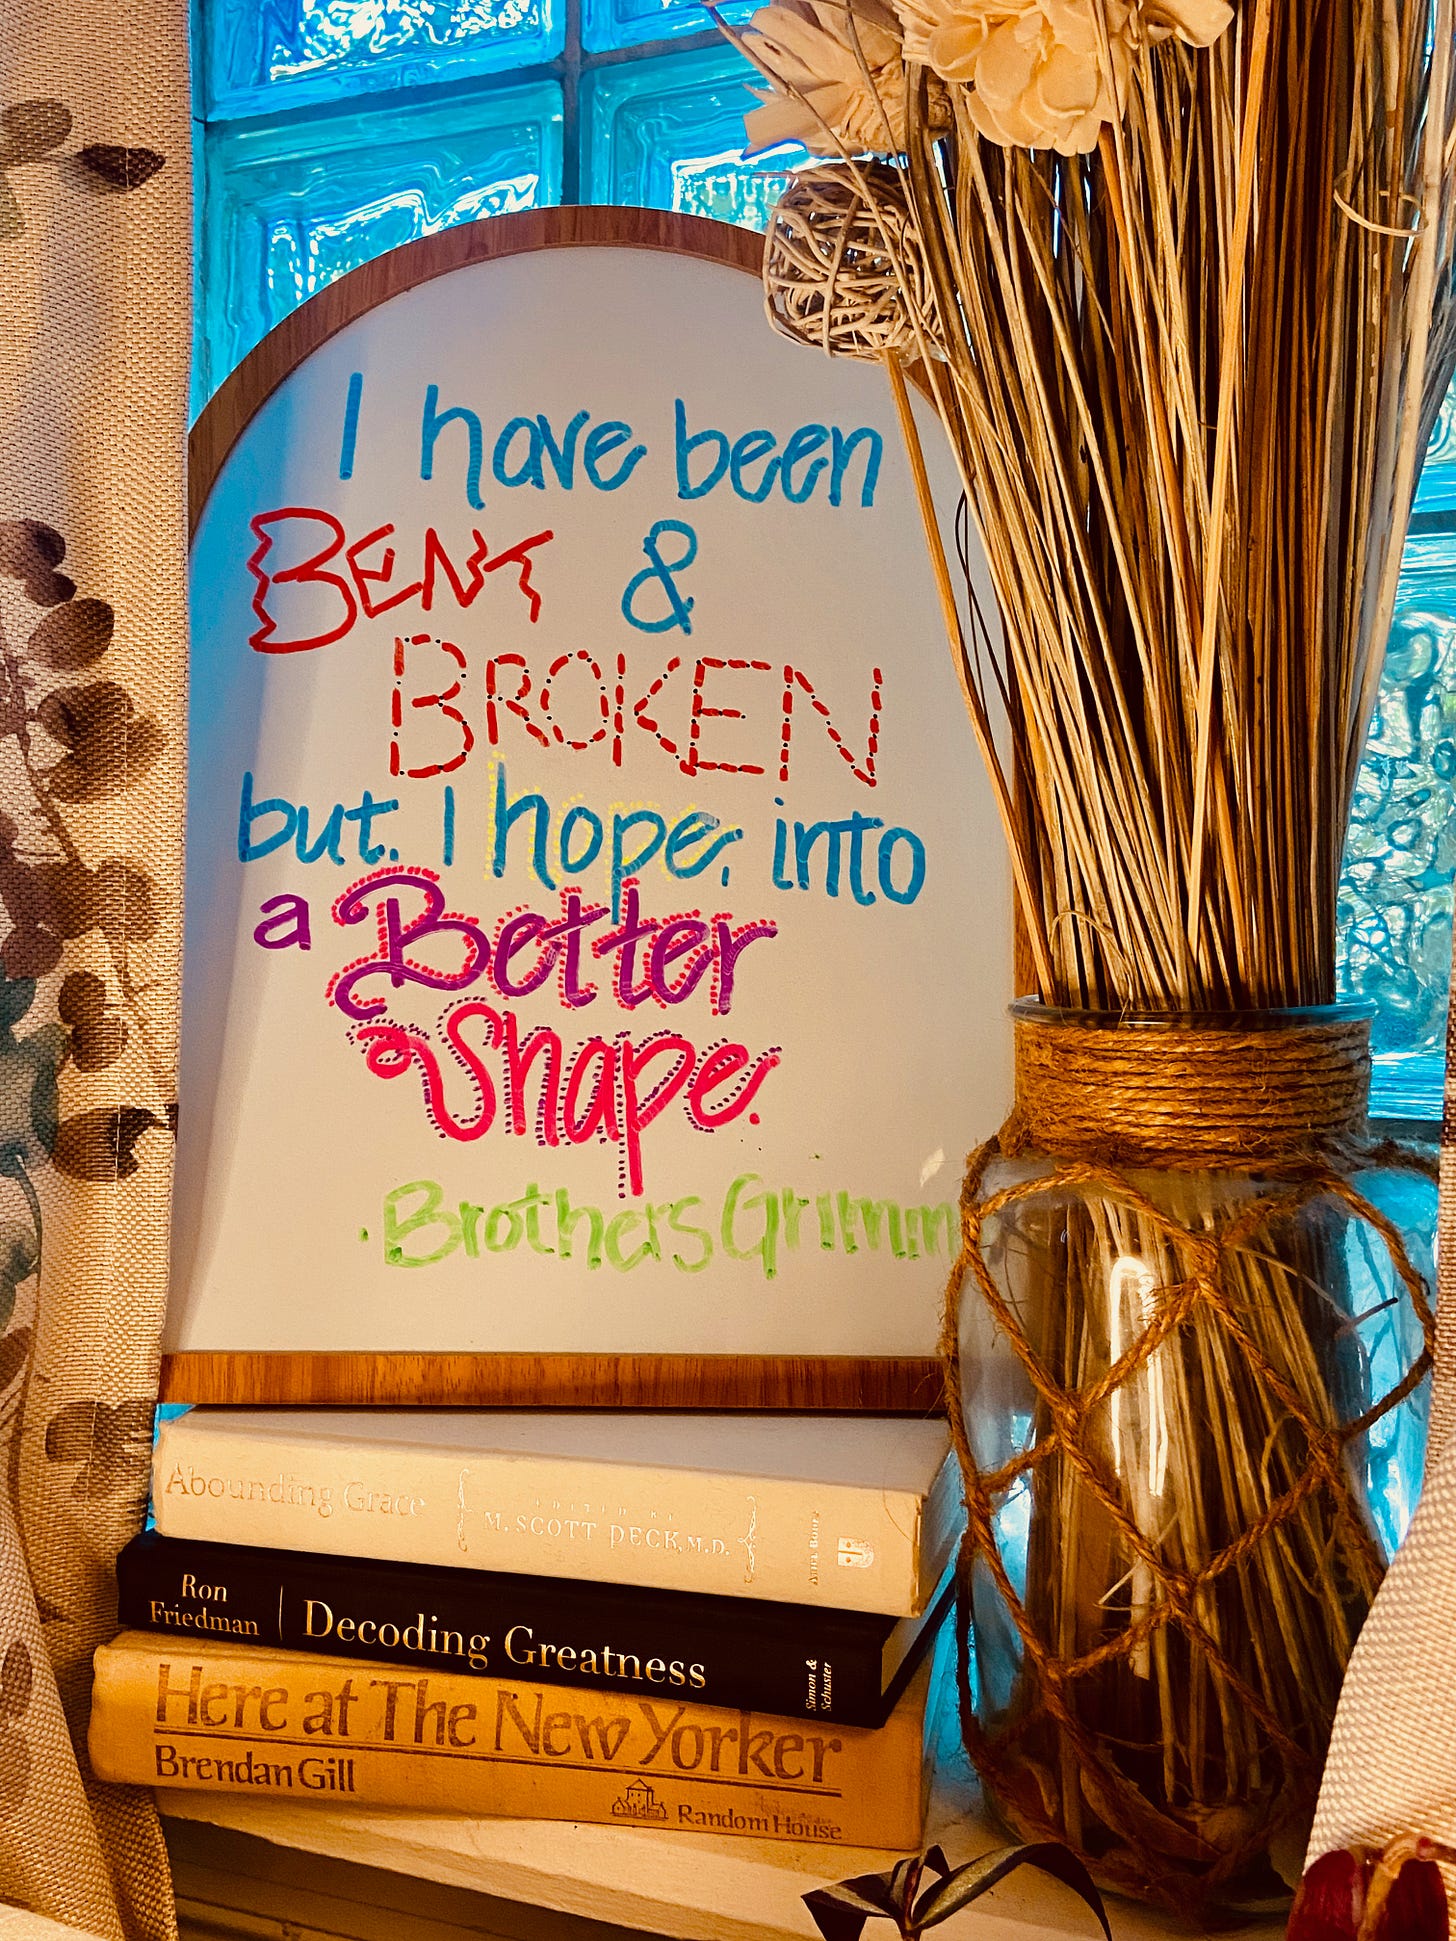 I have been
BENT &
BROKEN
but. I hope. into
a Better
Shape.
.Brothers Grimm
Abounding Grace
EDITED BY
M. SCOTT PECK, M.D.
Ron
Friedman
Decoding Greatness
Simon &
Schuster
Here at The New Yorker
Brendan Gill
Random House